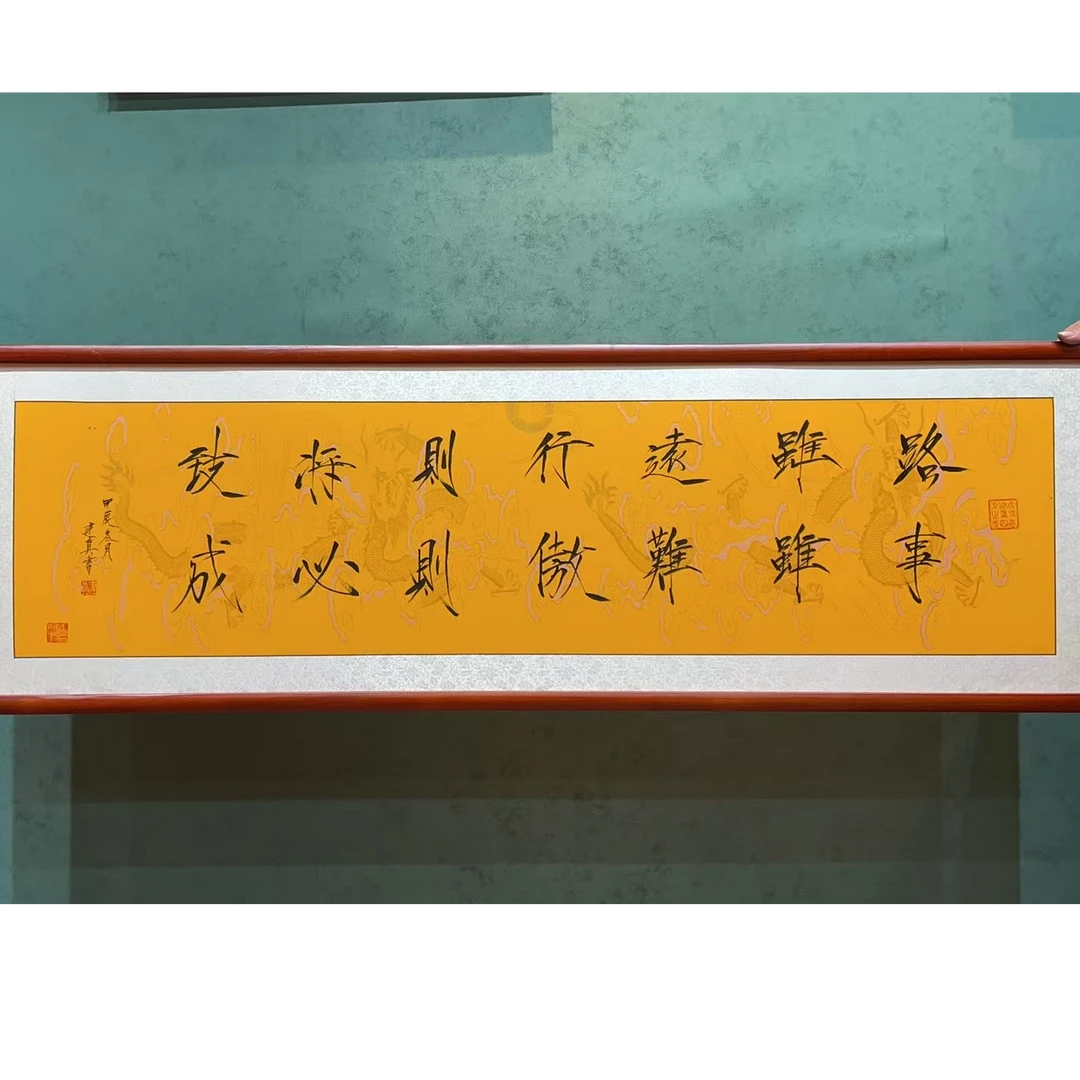 路雖遠行則将致
事雖難傲則必成
甲辰冬月
建真書